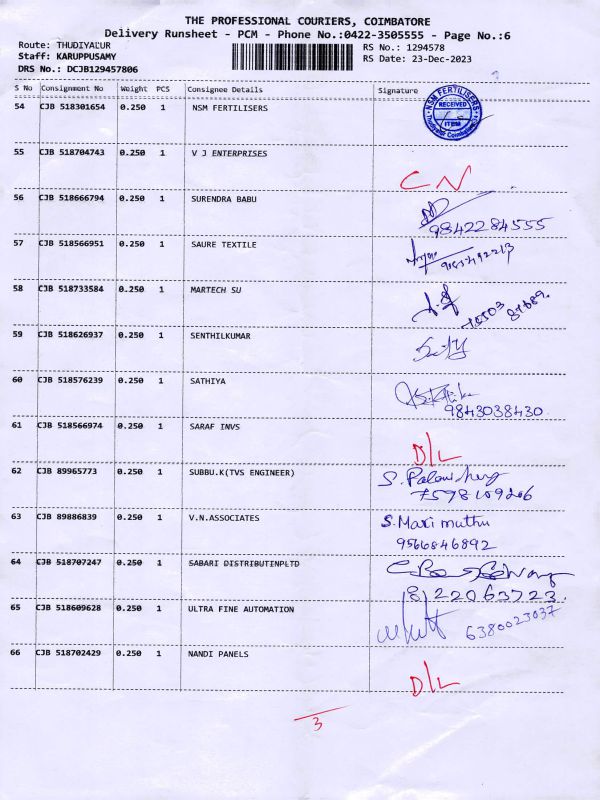 THE PROFESSIONAL COURIERS, COIMBATORE
Delivery Runsheet - PCM - Phone No.:0422-3505555 - Page No.:6
Route: THUDIYALUR RS No.: 1294578
Staff: KARUPPUSAMY RS Date: 23-Dec-2023
DRS No.: DCJB129457806
S No Consignment No Weight PCS Consignee Details Signature
54 CJB 518301654 0.250 1 NSM FERTILISERS
NSM FERTILISERS
RECEIVED
ITEM
Thudiyalur Coimbatore
55 CJB 518704743 0.250 1 V J ENTERPRISES
CN
56 CJB 518666794 0.250 1 SURENDRA BABU
9842284555
57 CJB 518566951 0.250 1 SAURE TEXTILE
58 CJB 518733584 0.250 1 MARTECH SU
59 CJB 518626937 0.250 1 SENTHILKUMAR
60 CJB 518576239 0.250 1 SATHIYA
9843038430
61 CJB 518566974 0.250 1 SARAF INVS
D/L
62 CJB 89965773 0.250 1 SUBBU.K(TVS ENGINEER)
63 CJB 89886839 0.250 1 V.N.ASSOCIATES S.Mari muthu
9566846892
64 CJB 518707247 0.250 1 SABARI DISTRIBUTINPLTD
8122063723
65 CJB 518609628 0.250 1 ULTRA FINE AUTOMATION 6380023037
66 CJB 518702429 0.250 1 NANDI PANELS
D/L
3